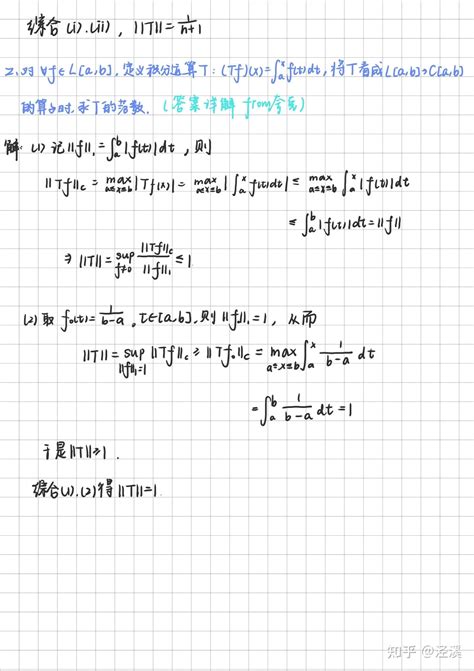 综合(i).(ii), ||T||=1/(n+1)
2. 对∀f∈L[a,b], 定义积分运算T: (Tf)(x)=∫_a^x f(t)dt, 将T看成L[a,b]→C[a,b]
的算子时, 求T的范数. (答案详解 from
解: (1) 记||f||₁=∫_a^b|f(t)|dt, 则
||Tf||_C = max_{a≤x≤b}|Tf(x)| = max_{a≤x≤b}|∫_a^x f(t)dt| ≤ max_{a≤x≤b}∫_a^x|f(t)|dt
≤ ∫_a^b|f(t)|dt=||f||
⇒ ||T|| = sup_{f≠0} ||Tf||_C/||f||₁ ≤ 1
(2) 取 f₀(t)=1/(b-a), t∈[a,b], 则||f₀||₁=1, 从而
||T|| = sup_{||f||₁=1}||Tf||_C ≥ ||Tf₀||_C = max_{a≤x≤b}∫_a^x 1/(b-a) dt
=∫_a^b 1/(b-a) dt=1
于是||T||≥1.
综合(1).(2)得||T||=1
知乎 @泾溪